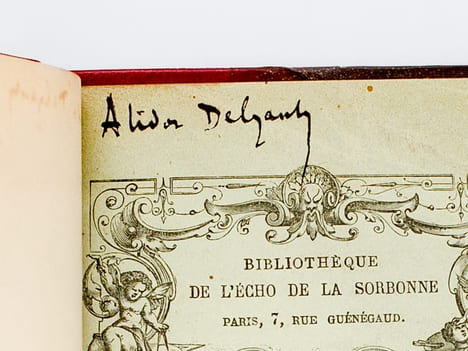 Alidor Delzant
BIBLIOTHÈQUE
DE L'ÉCHO DE LA SORBONNE
PARIS, 7, RUE GUÉNÉGAUD.